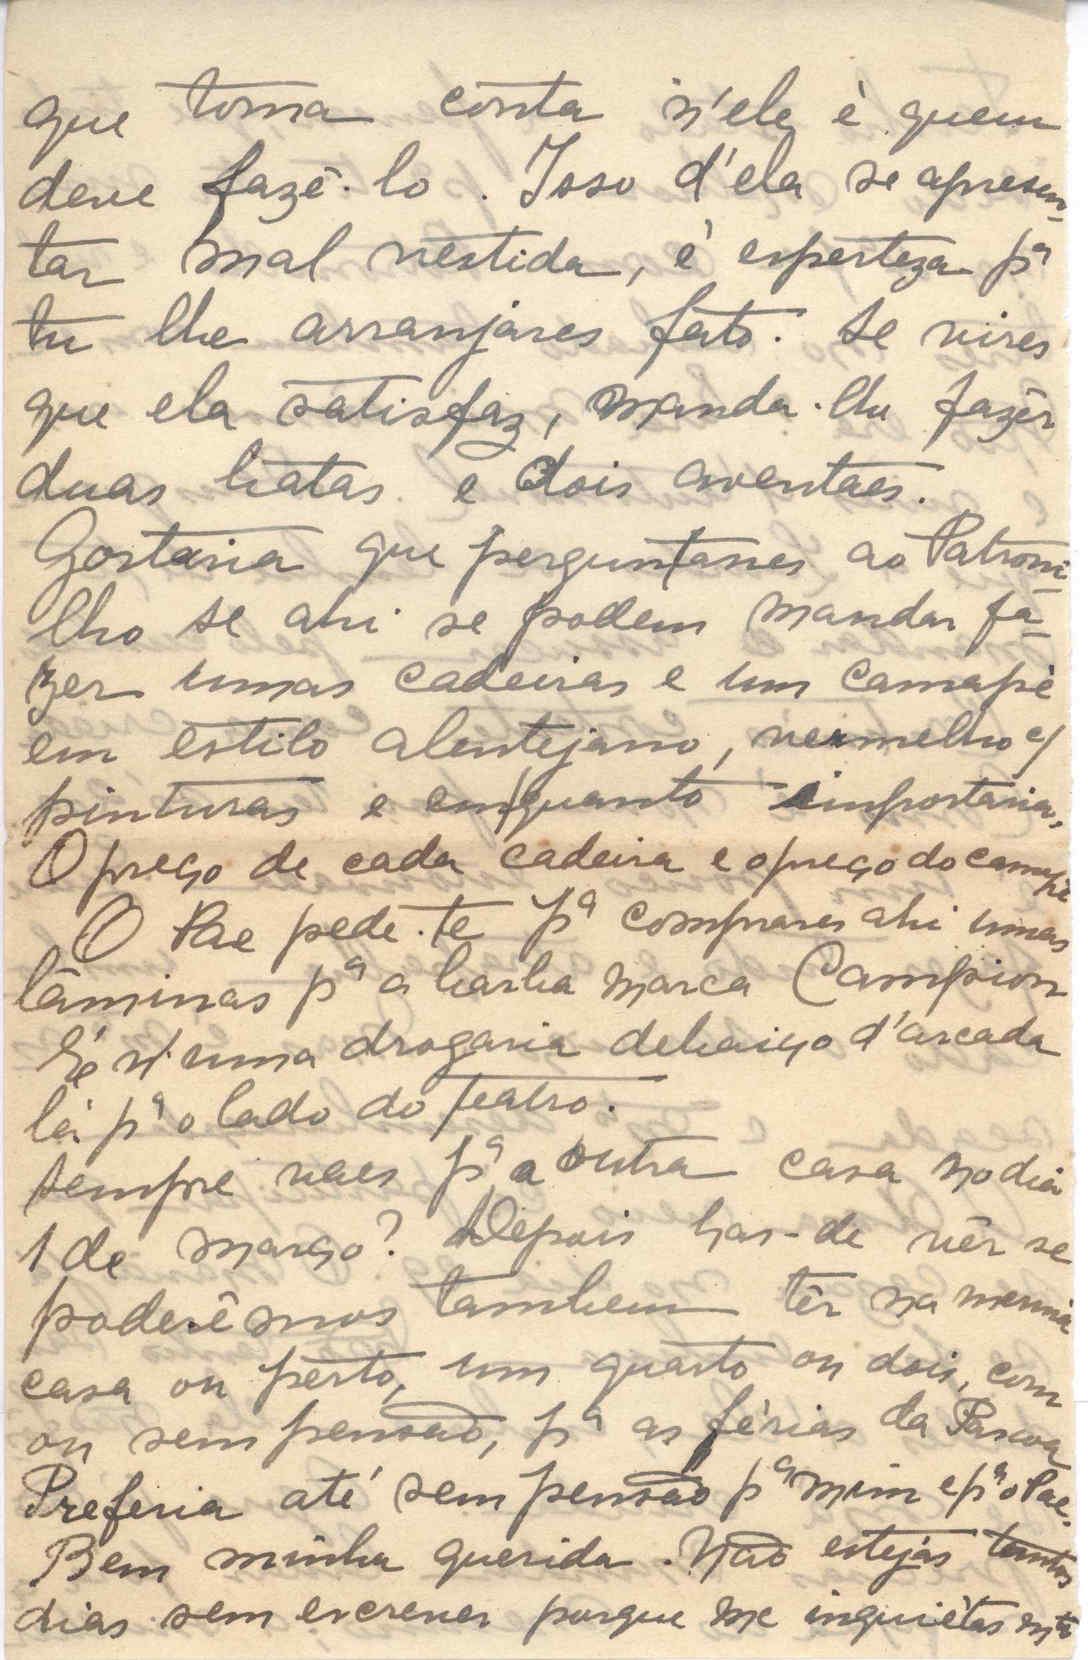 que toma conta n'ele è quem
deve fazê-lo. Isso d'ela se apresen-
tar mal vestida, é esperteza pª
tu lhe arranjares fato. Se vires
que ela satisfaz, manda-lhe fazêr
duas batas e dois aventaes.
Gostaria que perguntasses ao Patroni-
lho se ahi se podem mandar fa-
zer umas cadeiras e um camapè
em estilo alentejano, vermelho c/
pinturas e em quanto importaria.
O preço de cada cadeira e o preço do camapè
O Pae pede-te pª comprares ahi umas
lâminas pª a barba marca Campion
Há n'uma drogaria debaixo d'arcada
lá pª o lado do teatro.
Sempre vaes pª a outra casa no dia
1 de março? Depois has-de vêr se
poderêmos tambem têr na mesma
casa ou perto, um quarto ou dois, com
ou sem pensão, pª as férias da Pascoa
Preferia até sem pensão pª mim e pª o Pae.
Bem minha querida. Não estejas tantos
dias sem escrever porque me inquiétas mtº